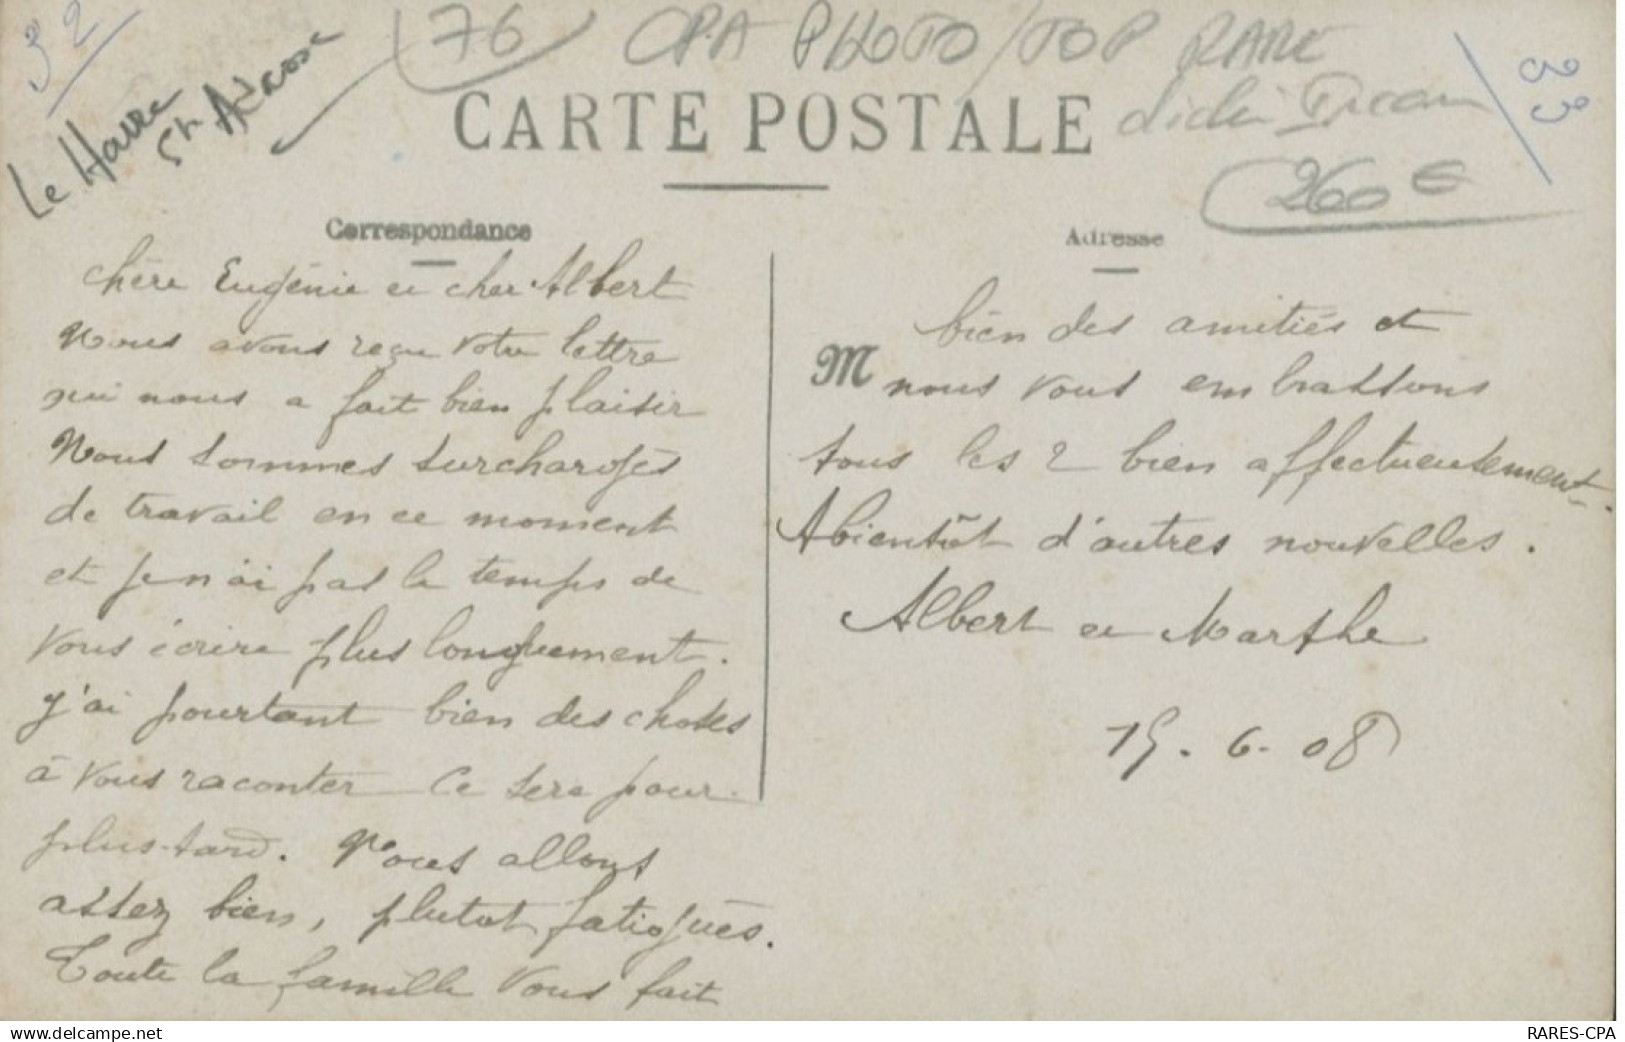 32
76
CPA PHOTO / TOP RARE
33
Le Havre
St Adresse
CARTE POSTALE
260 €
Correspondance
chère Eugénie et cher Albert
Nous avons reçu votre lettre
qui nous a fait bien plaisir
Nous sommes surchargés
de travail en ce moment
et je n'ai pas le temps de
vous écrire plus longuement.
j'ai pourtant bien des choses
à vous raconter Ce sera pour
plus tard. Nous allons
assez bien, plutot fatigués.
Toute la famille vous fait
Adresse
bien des amitiés et
M
nous vous embrassons
tous les 2 bien affectueusement.
A bientôt d'autres nouvelles.
Albert et Marthe
15. 6. 08
www.delcampe.net
RARES-CPA